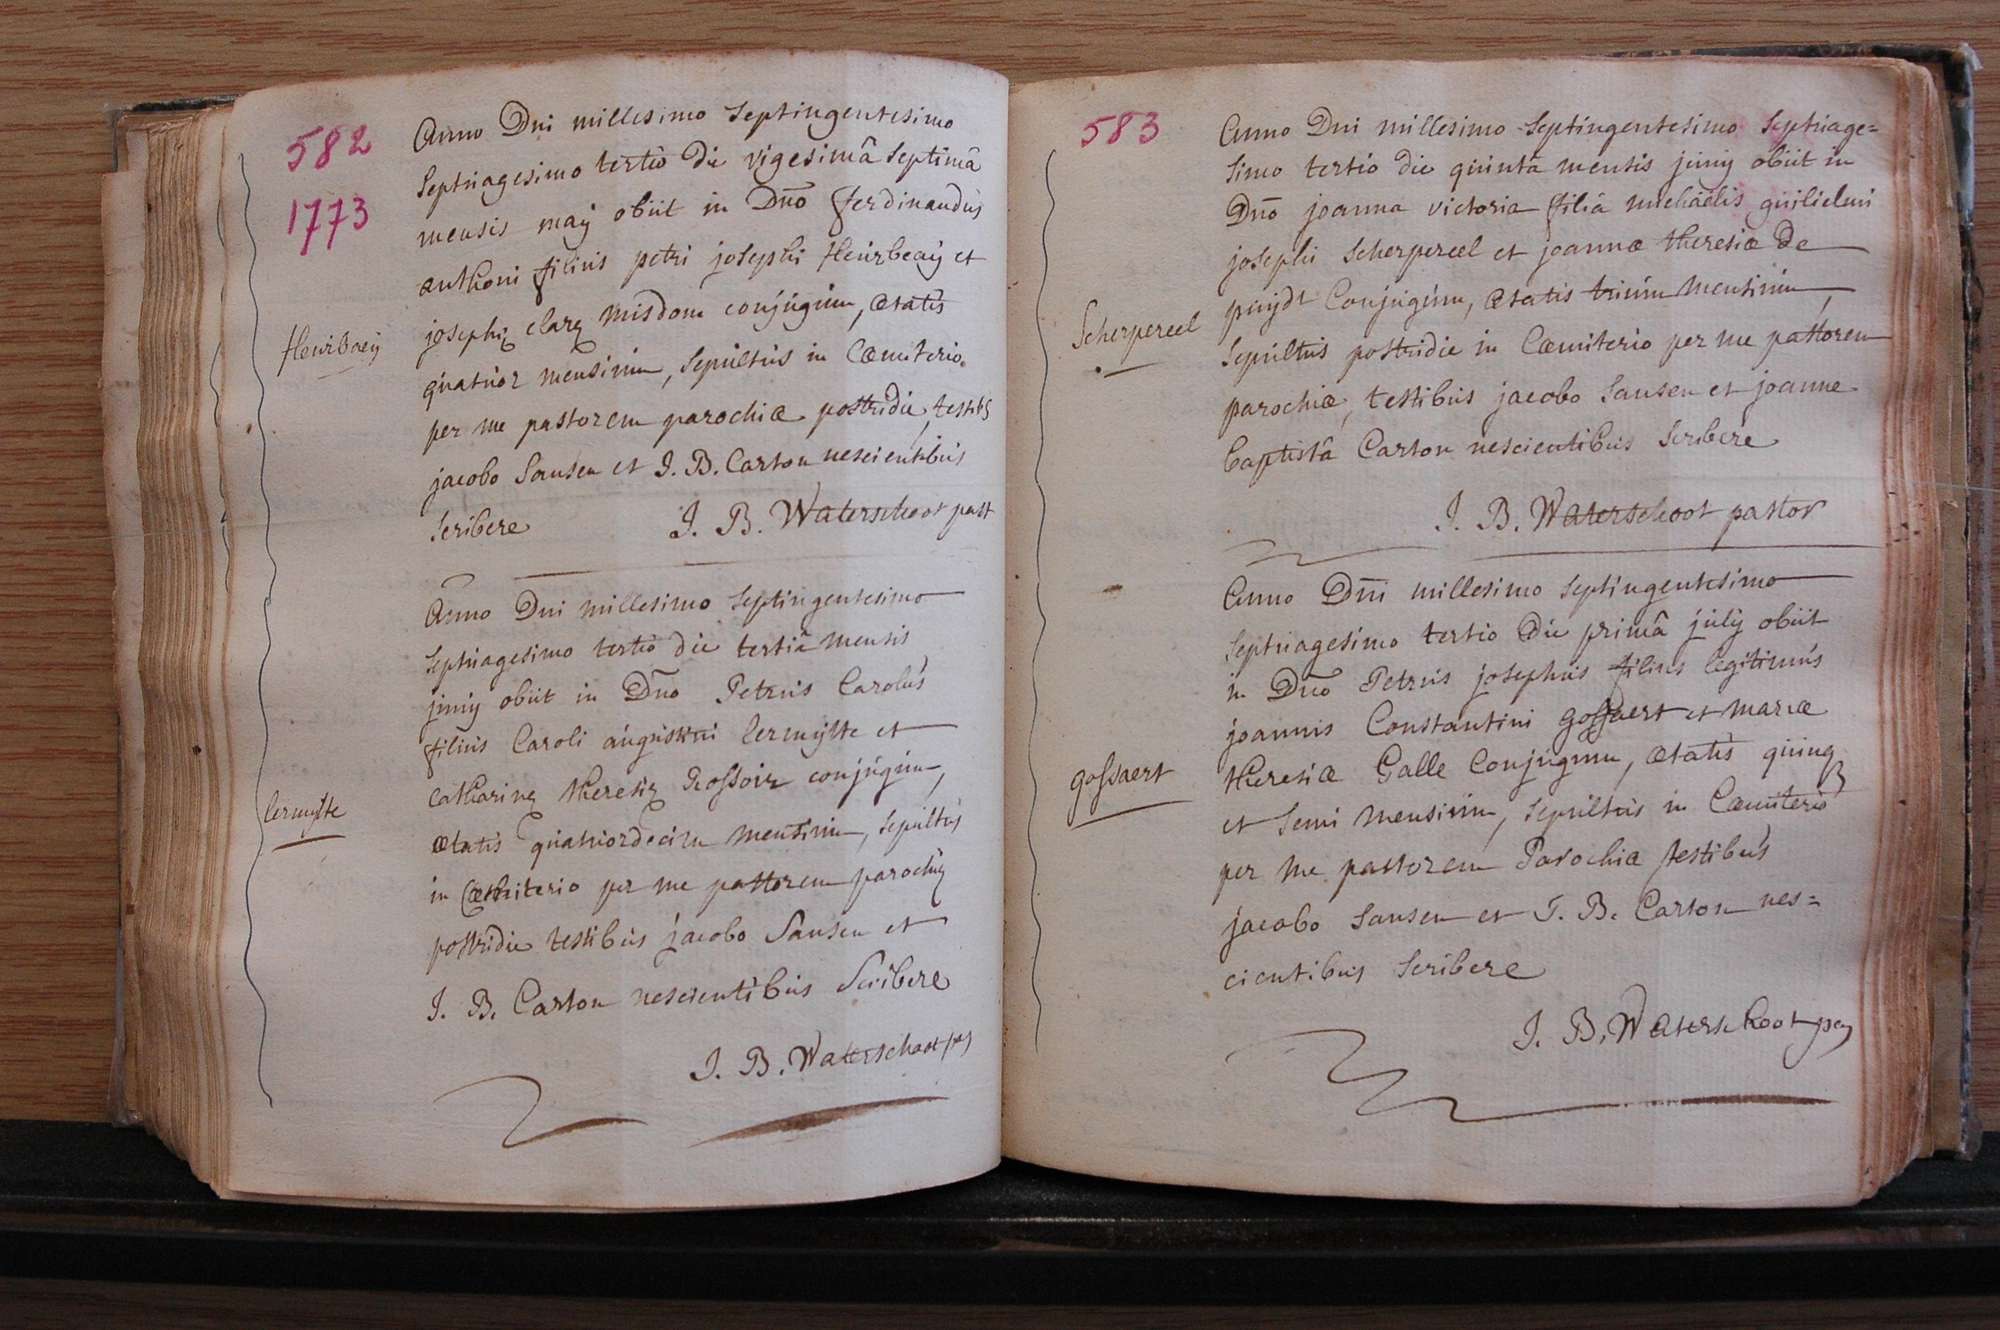 582
1773
Anno Dni millesimo Septingentesimo
Septuagesimo tertio die vigesimâ Septimâ
mensis maÿ obiit in Dno ferdinandus
anthoni filius petri josephi Heurbeaÿ et
josephę clarę Misdom conjugum, ætatis
quatuor mensium, Sepultus in Cœmiterio
per me pastorem parochiæ postridie, testibs
jacobo Sansen et J. B. Carton nescientibus
Scribere J. B. Waterschoot past
Anno Dni millesimo Septingentesimo
Septuagesimo tertio die tertiâ mensis
junÿ obiit in Dno Petrus Carolus
filius Caroli augustini lermÿtte et
catharinę theresię conjugum,
ætatis quatuordecim mensium, sepultus
in Cœmiterio per me pastorem parochię
postridie testibus jacobo Sansen et
J. B. Carton nescientibus Scribere
J. B. Waterschoot pas
lermÿtte
583
Anno Dni millesimo Septingentesimo Septuage=
Simo tertio die quintâ mensis junÿ obiit in
Dno joanna victoria filia michaëlis guilielmi
josephi Scherpereel et joannæ theresiæ De
puÿdt Conjugum, ætatis trium mensium,
Sepultus postridie in Cœmiterio per me pastorem
parochiæ, testibus jacobo Sansen et joanne
baptistâ Carton nescientibus Scribere
J. B. Waterschoot pastor
Scherpereel
Anno Dni millesimo Septingentesimo
Septuagesimo tertio die primâ julÿ obiit
in Dno Petrus josephus filius legitimus
joannis Constantini gossaert et mariæ
theresiæ Galle Conjugum, ætatis quinq
et Semi mensium, Sepultus in Cœmiterio
per me pastorem Parochiæ testibus
jacobo Sansen et J. B. Carton nes=
cientibus Scribere
J. B. Waterschoot pas
gossaert